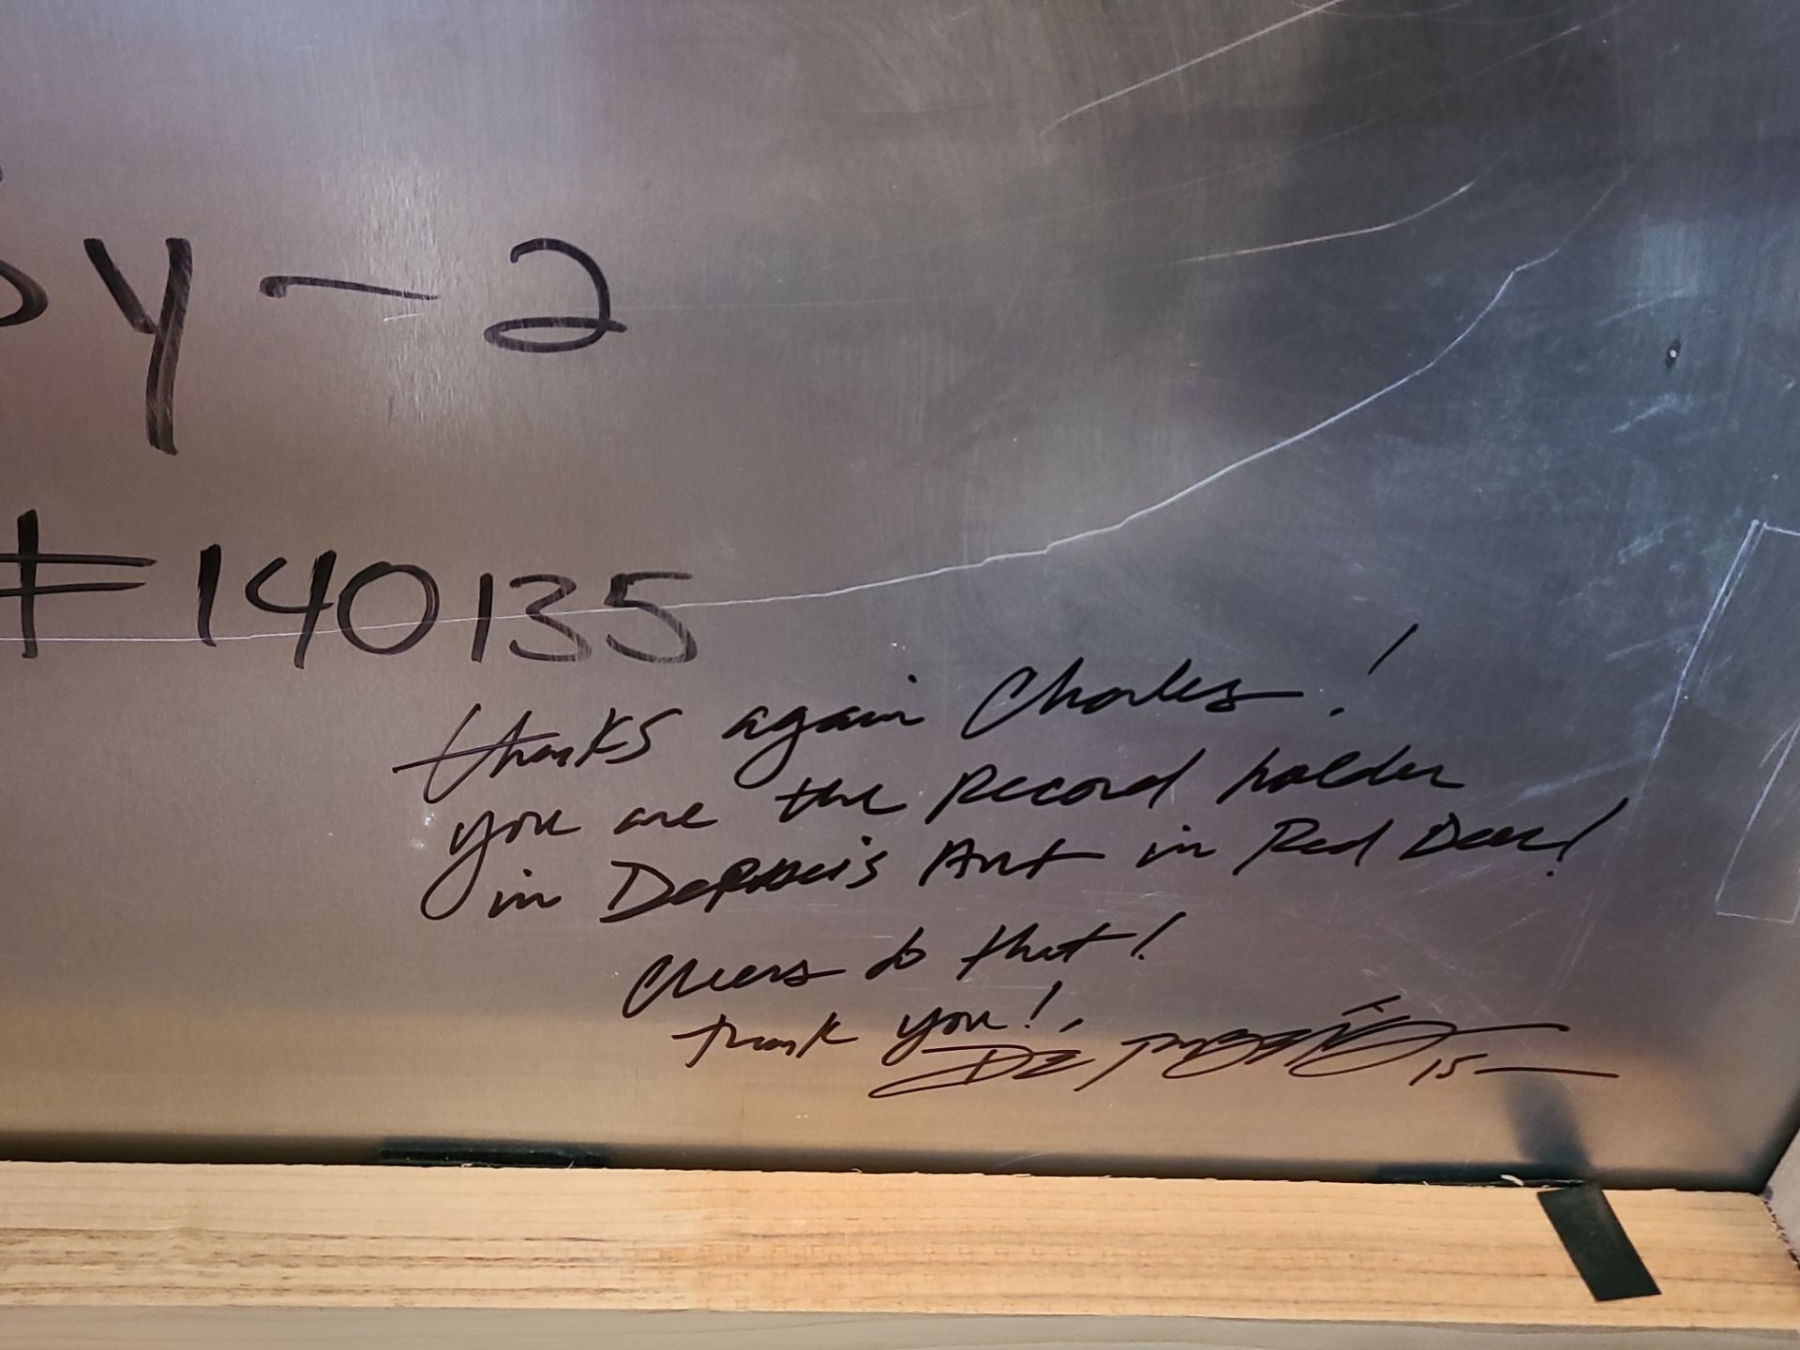 y-2
#140135
thanks again Charles!
you are the record holder
in Art in Red Deer!
cheers to that!
thank you!
15